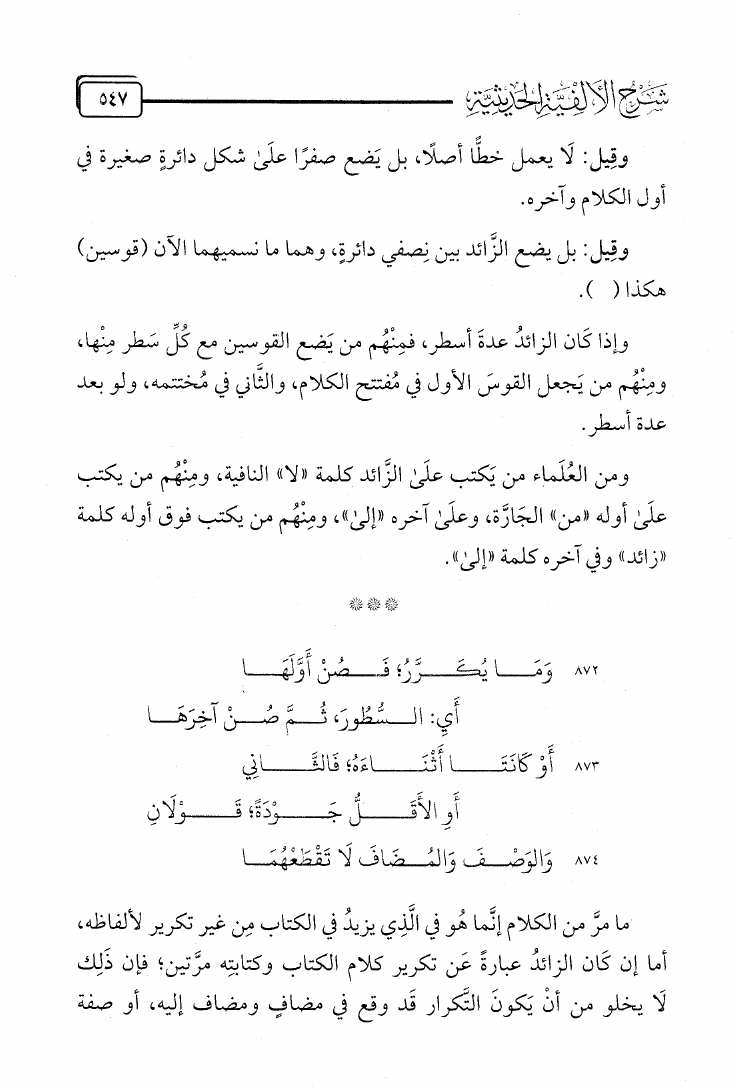 شَرْحُ الأَلْفِيَّةِ الْحَدِيثِيَّةِ ٥٤٧
وقِيل: لَا يعمل خطًّا أصلًا، بل يَضع صفرًا علَىٰ شكل دائرةٍ صغيرة في
أول الكلام وآخره.
وقِيل: بل يضع الزَّائد بين نِصفي دائرةٍ، وهما ما نسميهما الآن (قوسين)
هكذا ( ).
وإذا كَان الزائدُ عدةَ أسطر، فمِنْهُم من يَضع القوسين مع كُلِّ سَطر مِنْها،
ومِنْهُم من يَجعل القوسَ الأول في مُفتتح الكلام، والثَّاني في مُختتمه، ولو بعد
عدة أسطر.
ومن العُلَماء من يَكتب علَىٰ الزَّائد كلمة «لا» النافية، ومِنْهُم من يكتب
علَىٰ أوله «من» الجَارَّة، وعلَىٰ آخره «إلىٰ»، ومِنْهُم من يكتب فوق أوله كلمة
«زائد» وفي آخره كلمة «إلىٰ».
***
٨٧٢ وَمَـا يُكَـرَّرُ؛ فَـصُنْ أَوَّلَهَـا
أَيِ: الـسُّطُورَ، ثُـمَّ صُـنْ آخِرَهَـا
٨٧٣ أَوْ كَانَتَـا أَثْنَـاءَهُ؛ فَالثَّـانِي
أَوِ الأَقَـلُّ جَـوْدَةً؛ قَـوْلَانِ
٨٧٤ وَالوَصْـفَ وَالمُـضَافَ لَا تَقْطَعْهُمَـا
ما مرَّ من الكلام إنَّما هُو في الَّذِي يزيدُ في الكتاب مِن غير تكرير لألفاظه،
أما إن كَان الزائدُ عبارةً عَن تكرير كلام الكتاب وكتابتِه مرَّتين؛ فإن ذَلِك
لَا يخلو من أنْ يَكونَ التَّكرار قَد وقع في مضافٍ ومضاف إليه، أو صفة